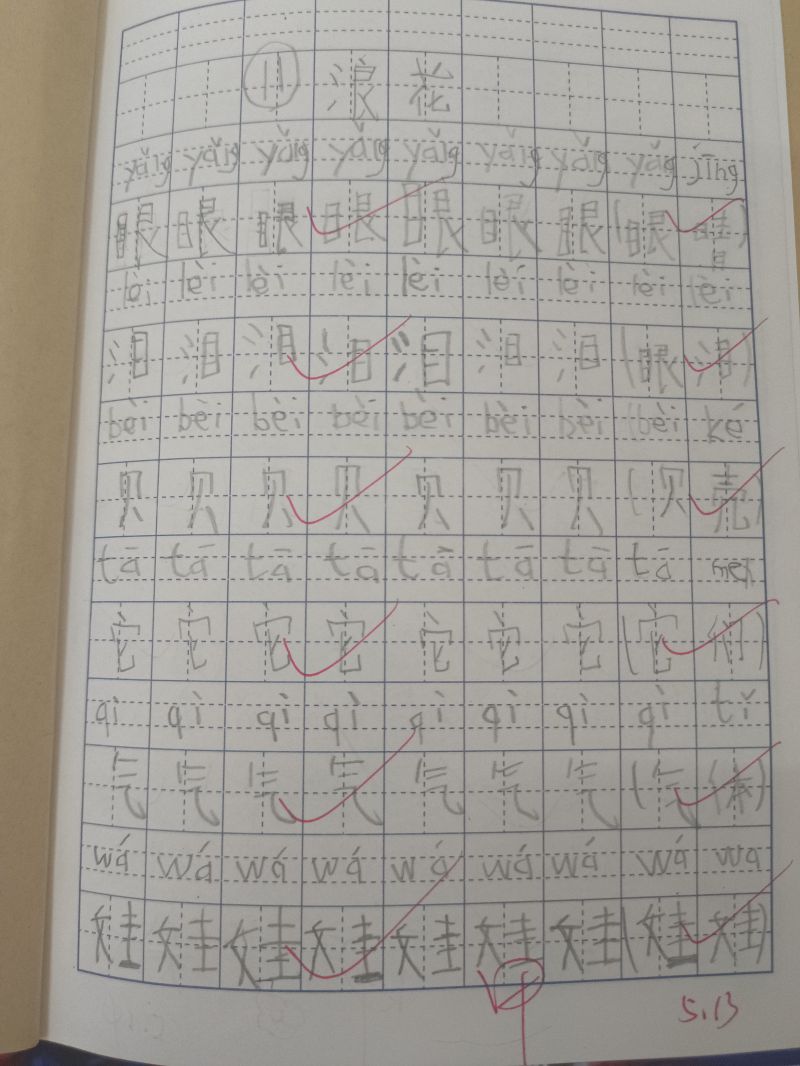 11 浪花
yǎng yǎng yǎng yǎng yǎng yǎng yǎng yǎng jīng
眼 眼 眼 眼 眼 眼 眼 (眼 睛)
lèi lèi lèi lèi lèi lèi lèi lèi lèi
泪 泪 泪 泪 泪 泪 泪 (眼 泪)
bèi bèi bèi bèi bèi bèi bèi bèi ké
贝 贝 贝 贝 贝 贝 贝 (贝 壳)
tā tā tā tā tā tā tā tā men
它 它 它 它 它 它 它 (它 们)
qì qì qì qì qì qì qì qì tǐ
气 气 气 气 气 气 气 (气 体)
wá wá wá wá wá wá wá wá wa
娃 娃 娃 娃 娃 娃 娃 (娃 娃)
5.13